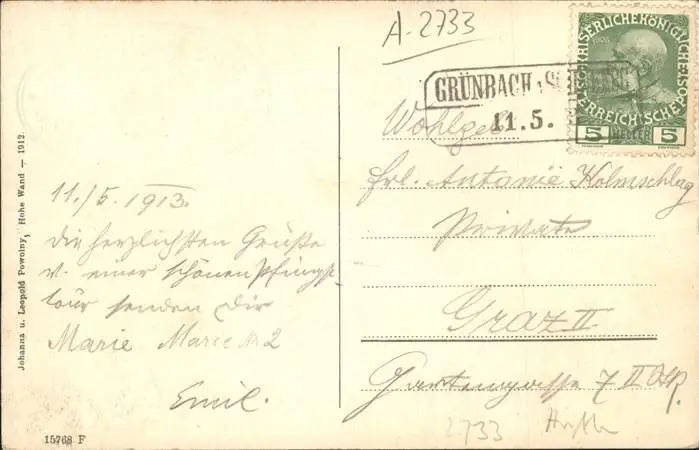 A-2733
KAISERLICHE KÖNIGLICHE
ÖSTERREICHISCHE POST
1908
5 HELLER 5
GRÜNBACH
11.5.
Johanna u. Leopold Powolny, Hohe Wand — 1912.
11./5. 1913.
die herzlichsten Grüße
v. einer schönen Pfingst
tour senden Dir
Marie Marie N. 2
Emil.
Wohlgeb.
Frl. Antonie Holmschlag
Private
Graz II
Gartengasse 7 II
15768 F
2733